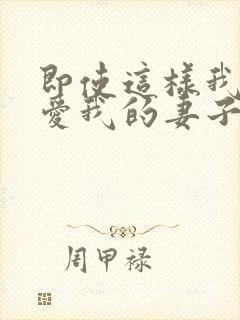 即使這樣我
愛我的妻子
周甲禄